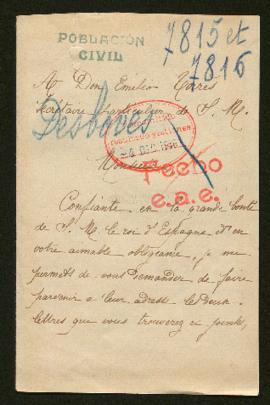 POBLACIÓN
CIVIL
7815 et
7816
A Don Emilio Torres
Secrétaire particulier de S. M.
Desboves
Monsieur
Fecho
e.a.e.
Confiante en la grande bonté
de S. M. le roi d'Espagne et en
votre aimable obligeance, je me
permets de vous demander de faire
parvenir à leur adresse les deux
lettres que vous trouverez ci jointes,